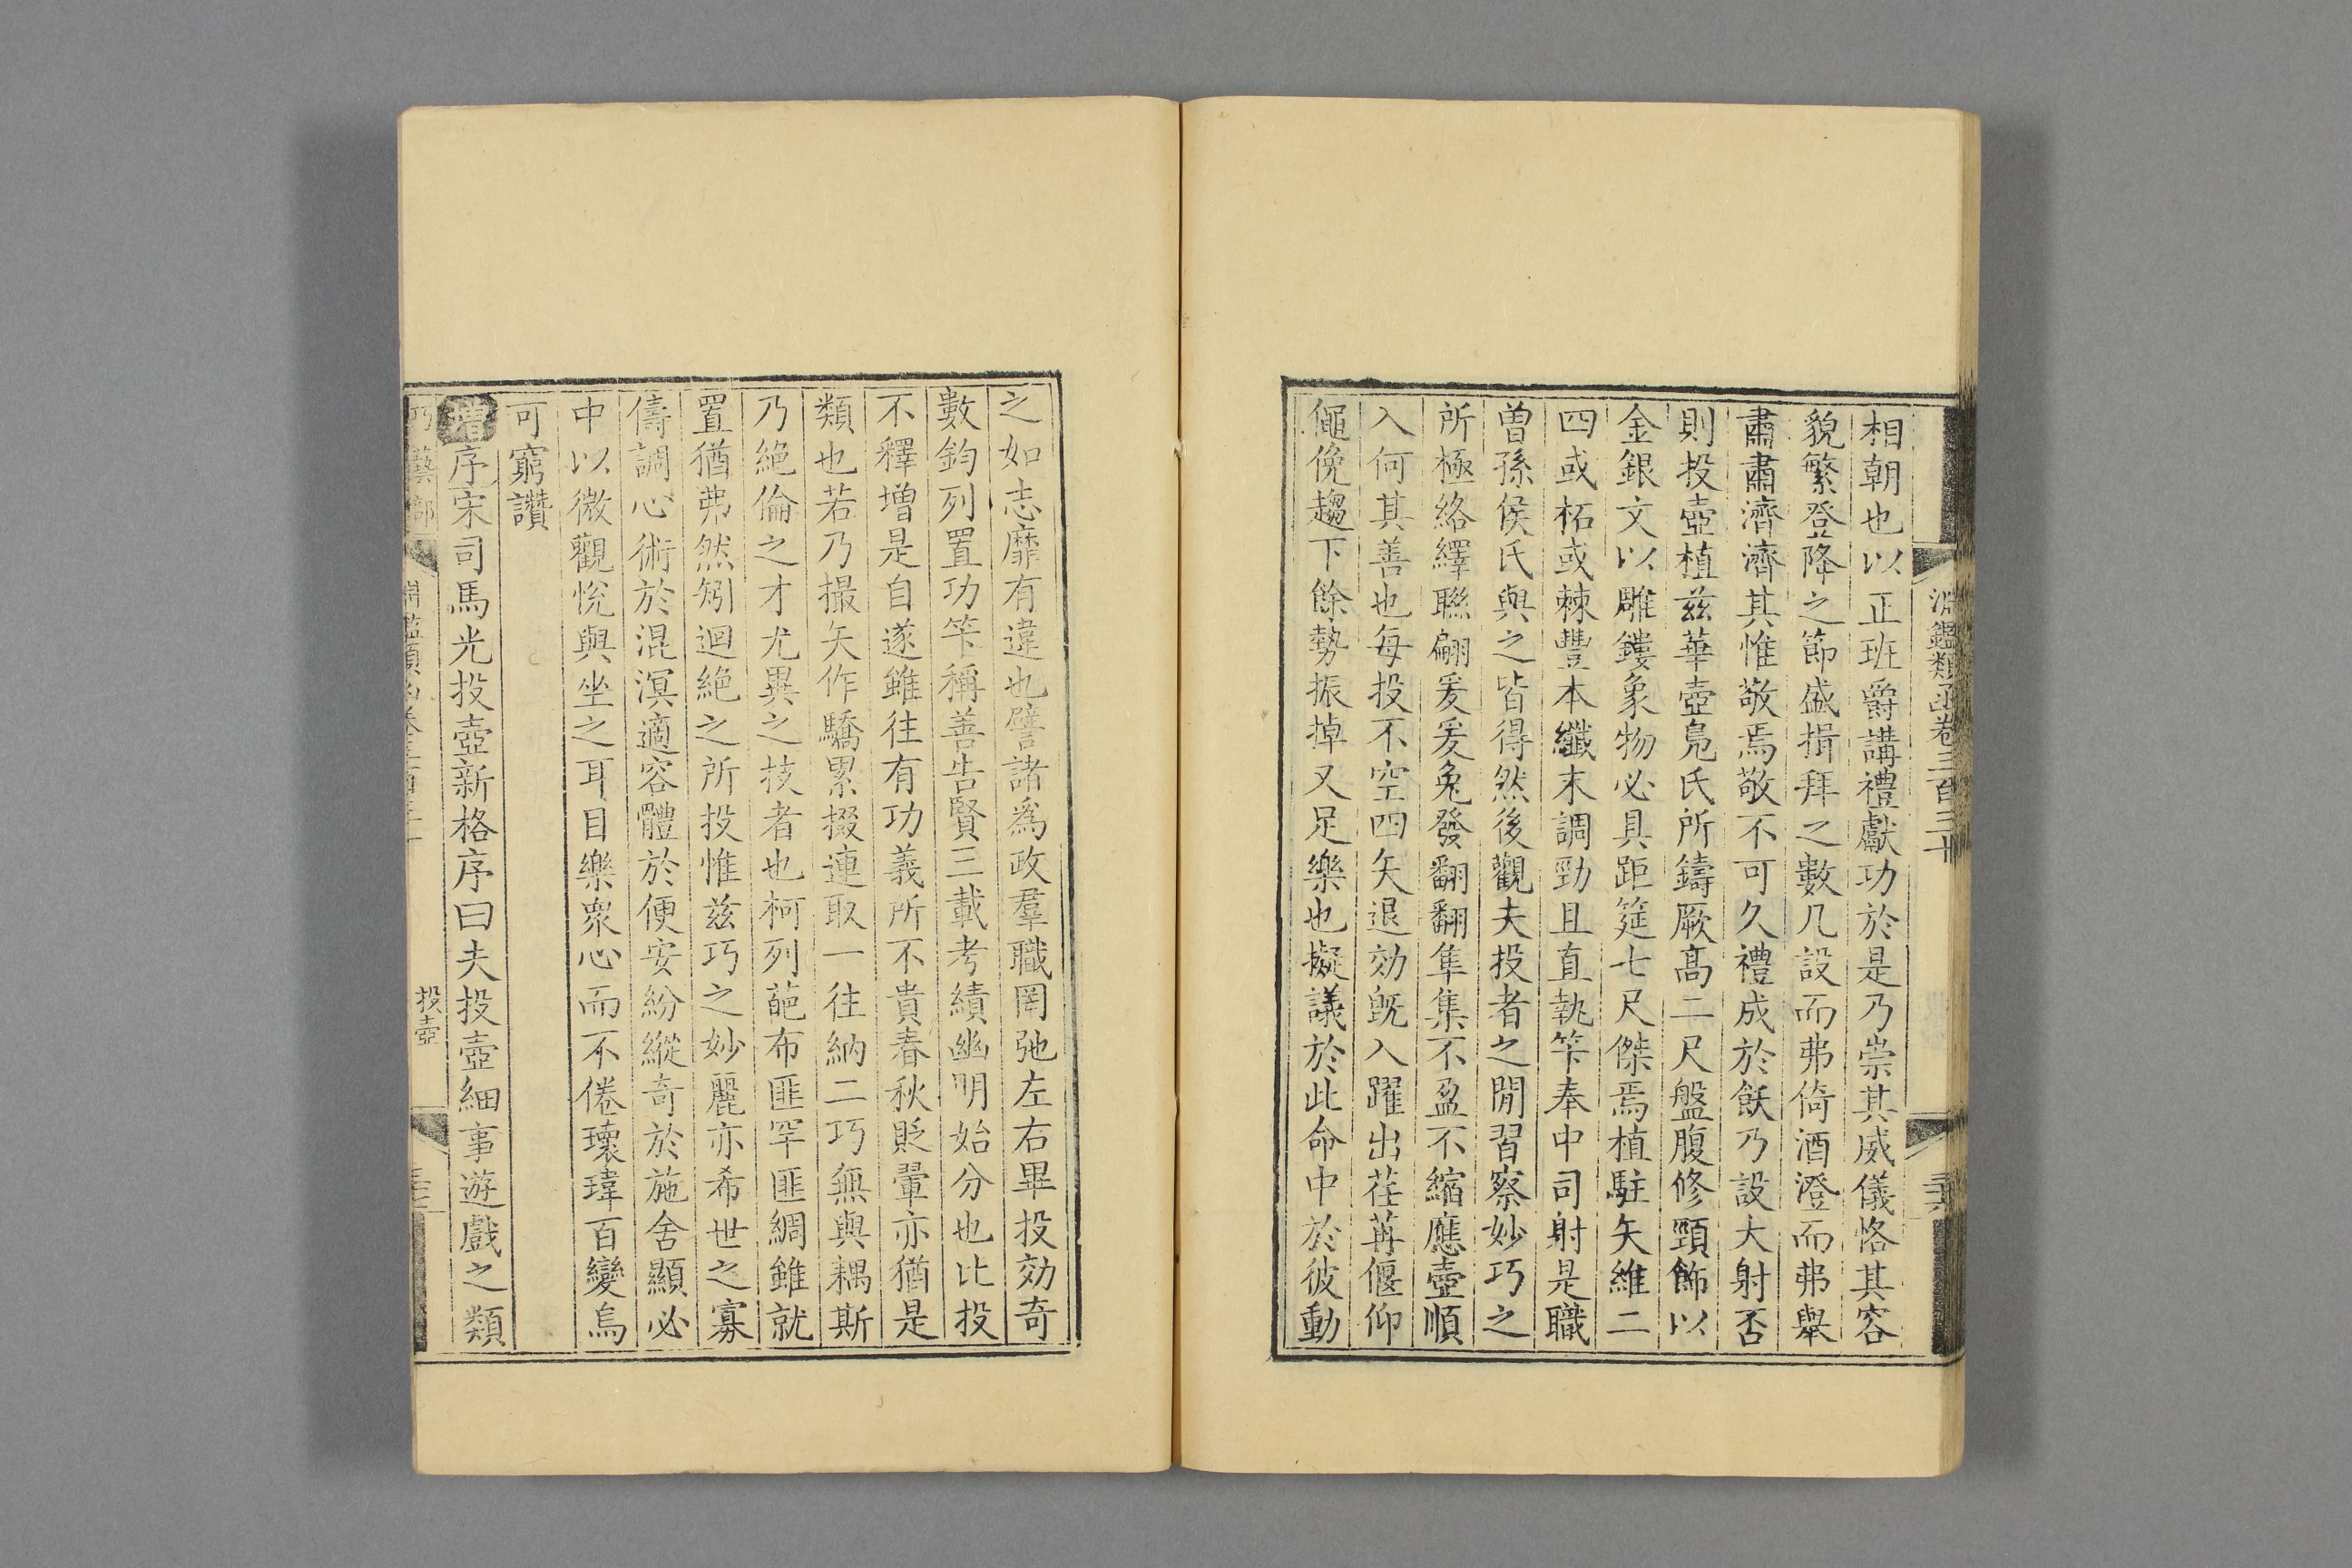 淵鑑類函卷三百三十
相朝也以正班爵講禮獻功於是乃崇其威儀恪其容
貌繁登降之節盛揖拜之數几設而弗倚酒澄而弗舉
肅肅濟濟其惟敬焉敬不可久禮成於飫乃設大射否
則投壺植兹華壺鳧氏所鑄厥髙二尺盤腹修頸飾以
金銀文以雕鏤象物必具距筵七尺傑焉植駐矢維二
四或柘或棘豐本纖末調勁且直執筭奉中司射是職
曽孫侯氏與之皆得然後觀夫投者之閒習察妙巧之
所極絡繹聯翩爰爰兔發翻翻隼集不盈不縮應壺順
入何其善也每投不空四矢退効旣入躍出荏苒偃仰
僶俛趨下餘勢振掉又足樂也擬議於此命中於彼動
之如志靡有違也譬諸為政羣職罔弛左右畢投効奇
數鈞列置功筭稱善告賢三載考績幽明始分也比投
不釋增是自遂雖往有功義所不貴春秋貶翬亦猶是
類也若乃撮矢作驕累掇連取一往納二巧無與耦斯
乃絶倫之才尤異之技者也柯列葩布匪罕匪綢雖就
置猶弗然矧迴絶之所投惟兹巧之妙麗亦希世之寡
儔調心術於混溟適容體於便安紛縱奇於施舍顯必
中以微觀悅與坐之耳目樂衆心而不倦瓌瑋百變烏
可窮讚
增序宋司馬光投壺新格序曰夫投壺細事遊戲之類
巧藝部
投壺